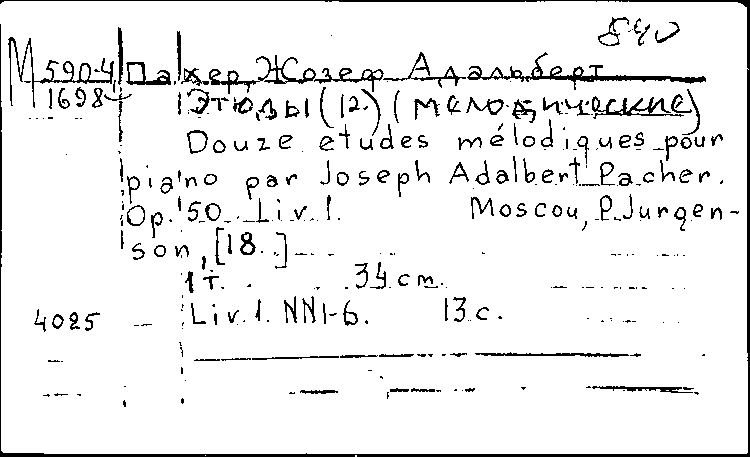 840
М 590-4 Пахер, Жозеф Адальберт
1698 Этюды (12.) (мелодические)
Douze etudes mélodiques pour
piano par Joseph Adalbert Pacher.
Op. 50. Liv. 1. Moscou, P. Jurgen-
son, [18..]
1 т. 34 cm.
4025 Liv. 1. NN1-6. 13 с.